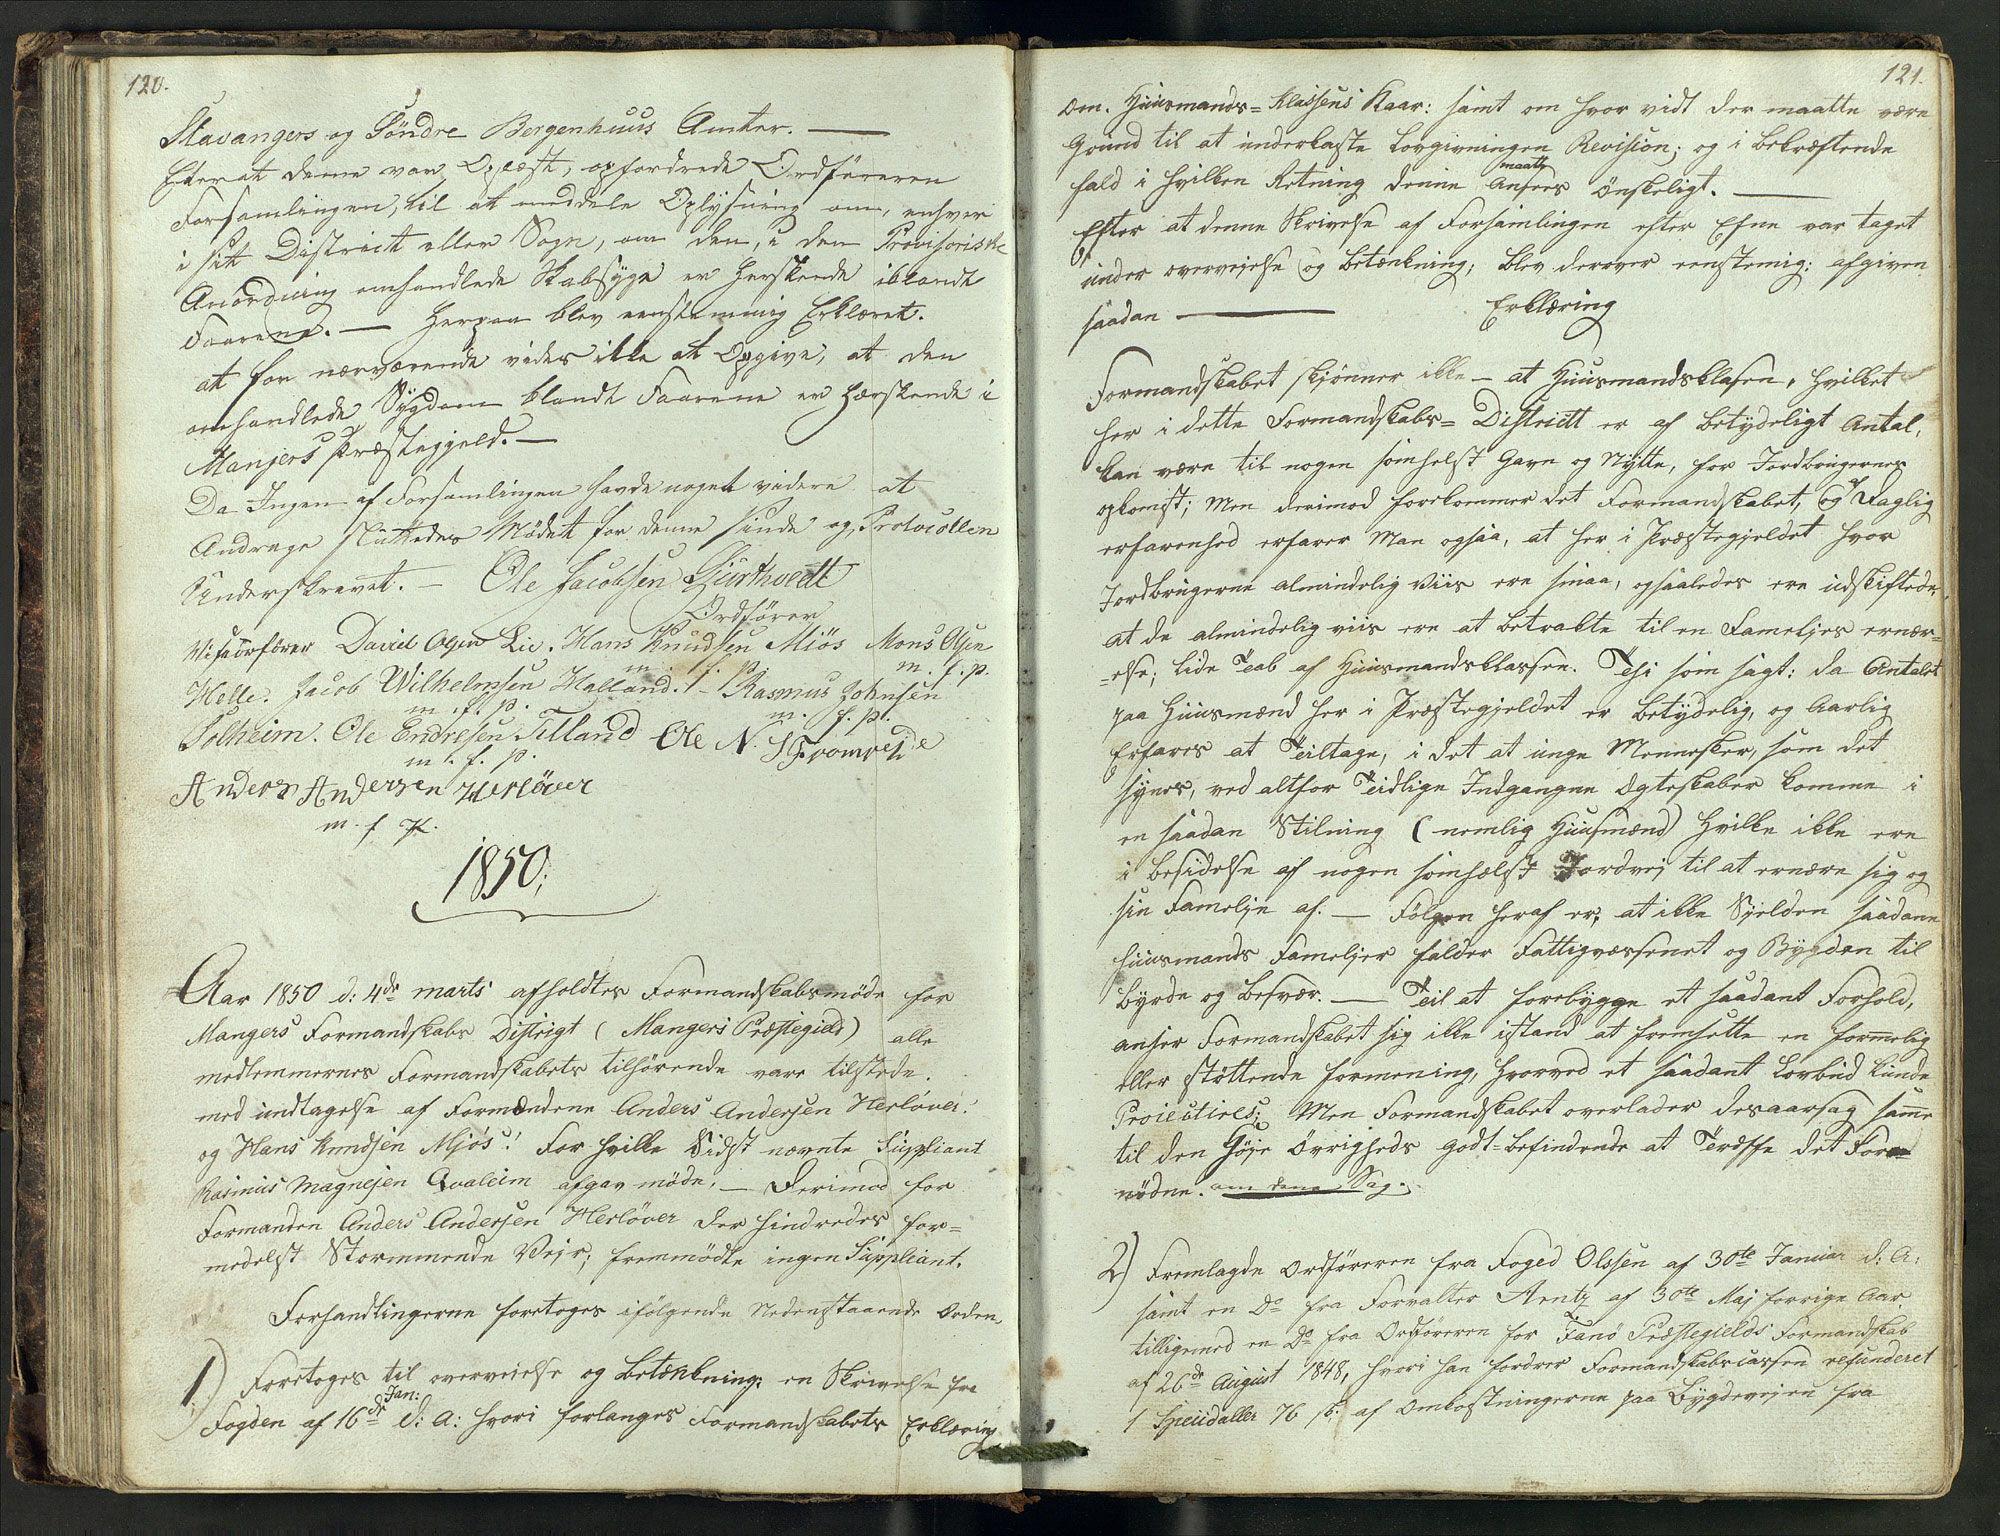 120.
Stavangers og Söndre Bergenhuus Amter. —
Efterat denne var Oplæst, opfordrede Ordföreren
Forsamlingen, til at meddele Oplysning om, enhver
i sit District eller Sogn, om den, i den Provisoriske
Anordning omhandlede Skabsyge er herskende iblandt
Faarene. — Herpaa blev eenstemmig Erklæret.
at for nærværende vides ikke at Opgive, at den
omhandlede Sÿgdom blandt Faarene er Hærskende i
Mangers Præstegjæld. —
Da Ingen af Forsamlingen havde noget videre at
Andrage sluttedes Mödet for denne sinde og Protocollen
Underskrevet. — Ole Jacobsen Gjurthvedt
Ordförer
Wiseordförer David Olsen Lie. Hans Knudsen Miös Mons Olsen
m. f. p. m. f. p.
Helle. Jacob Wilhelmsen Halland. - Rasmus Johnsen
m. f. p. m. f. p.
Solheim. Ole Endresen Tilland Ole N.
m. f. p.
Anders Andersen Herlöver
m. f. p.
1850;
Aar 1850 d: 4de marts afholdtes Formandskabsmöde for
Mangers Formandskabs Distrigt (Mangers Præstegield) alle
medlemmernes Formandskabets tilhörende vare tilstede.
med undtagelse af Formændene Anders Andersen Herlöver!
og Hans Knudsen Mjös! For hvilke Sidst nævnte Suppliant
Rasmus Magnesen Qvaleim afgav möde. — Derimod for
Formanden Anders Andersen Herlöver der hindredes for=
medelst Stormmende Vejr; fremmödte ingen Suppliant.
Forhandlingerne foretoges i følgende Nedenstaaende Orden,
1) Foretoges til overveielse og betænkning: en Skrivelse fra
Jan:
Fogden af 16de d: A: hvori forlanges Formandskabets Erklæring
121.
om. Huusmands= Klassens Kaar: samt om hvor vidt der maatte være
Grund til at underkaste Lovgivningen Revision; og i bekræftende
maatte
fald i hvilken Retning denne Ansees önskeligt. —
Efter at denne Skrivelse af Forsamlingen efter Efne var taget
under overvejelse og Betænkning, blev derover eenstemig: afgiven
saadan — Erklæring
Formandskabet skjönner ikke — at Huusmandsklasen, hvilket
her i dette Formandskabs= Districtt er af betydeligt Antal,
kan være til nogen somhelst Gavn og Nÿtte, for Jordbrugernes
opkomst; Men derimod forekommer det Formandskabet, og Daglig
erfarenhed erfarer Man ogsaa, at her i Præstegjeldet hvor
Jordbrugerne almindelig viis ere smaa, ogsaaledes ere udskiftede,
at de almindelig viis ere at betrakte til en Fameljes ernær=
=else; lide Tab af Huusmandsklassen. Thi som sagt: da Antalet
paa Huusmænd her i Præstegjeldet er betydelig, og Aarlig
Erfares at Tiltage, i det at unge Mennesker, som det
synes, ved altfor Tidlige Indgangne Ægteskaber komme i
en saadan Stilning (nemlig Huusmænd) Hvilke ikke ere
i besidelse af nogen somhælst Jordvej til at ernære sig og
sin Famelje af. — Fölgen heraf er, at ikke Sjelden saadane
huusmands Fameljer falder Fattigvæsenet og Bÿgden til
byrde og besvær. — Til at forebÿgge et saadant Forhold,
anser Formandskabet sig ikke istand at fremsette en formelig
eller stöttende formening, hvorved et saadant Lovbud kunde
Men Formandskabet overlader desaarsag samme
til den Höje Övrigheds godt=befindende at det Forn
nödne. om denne Sag.
2) Fremlagde Ordföreren fra Foged Olssen af 30te Januar d: A:
samt en Do fra Forvalter Arntz af 30te Maj forrige Aar.
tilligemed en Do fra Ordföreren for Fanö Præstegields Formandskab
af 26de August 1848, hvori han fordrer Formandskabscassen refunderet
1 Speciedaller 76 sk: af Omkostningerne paa Bÿgdeveien fra